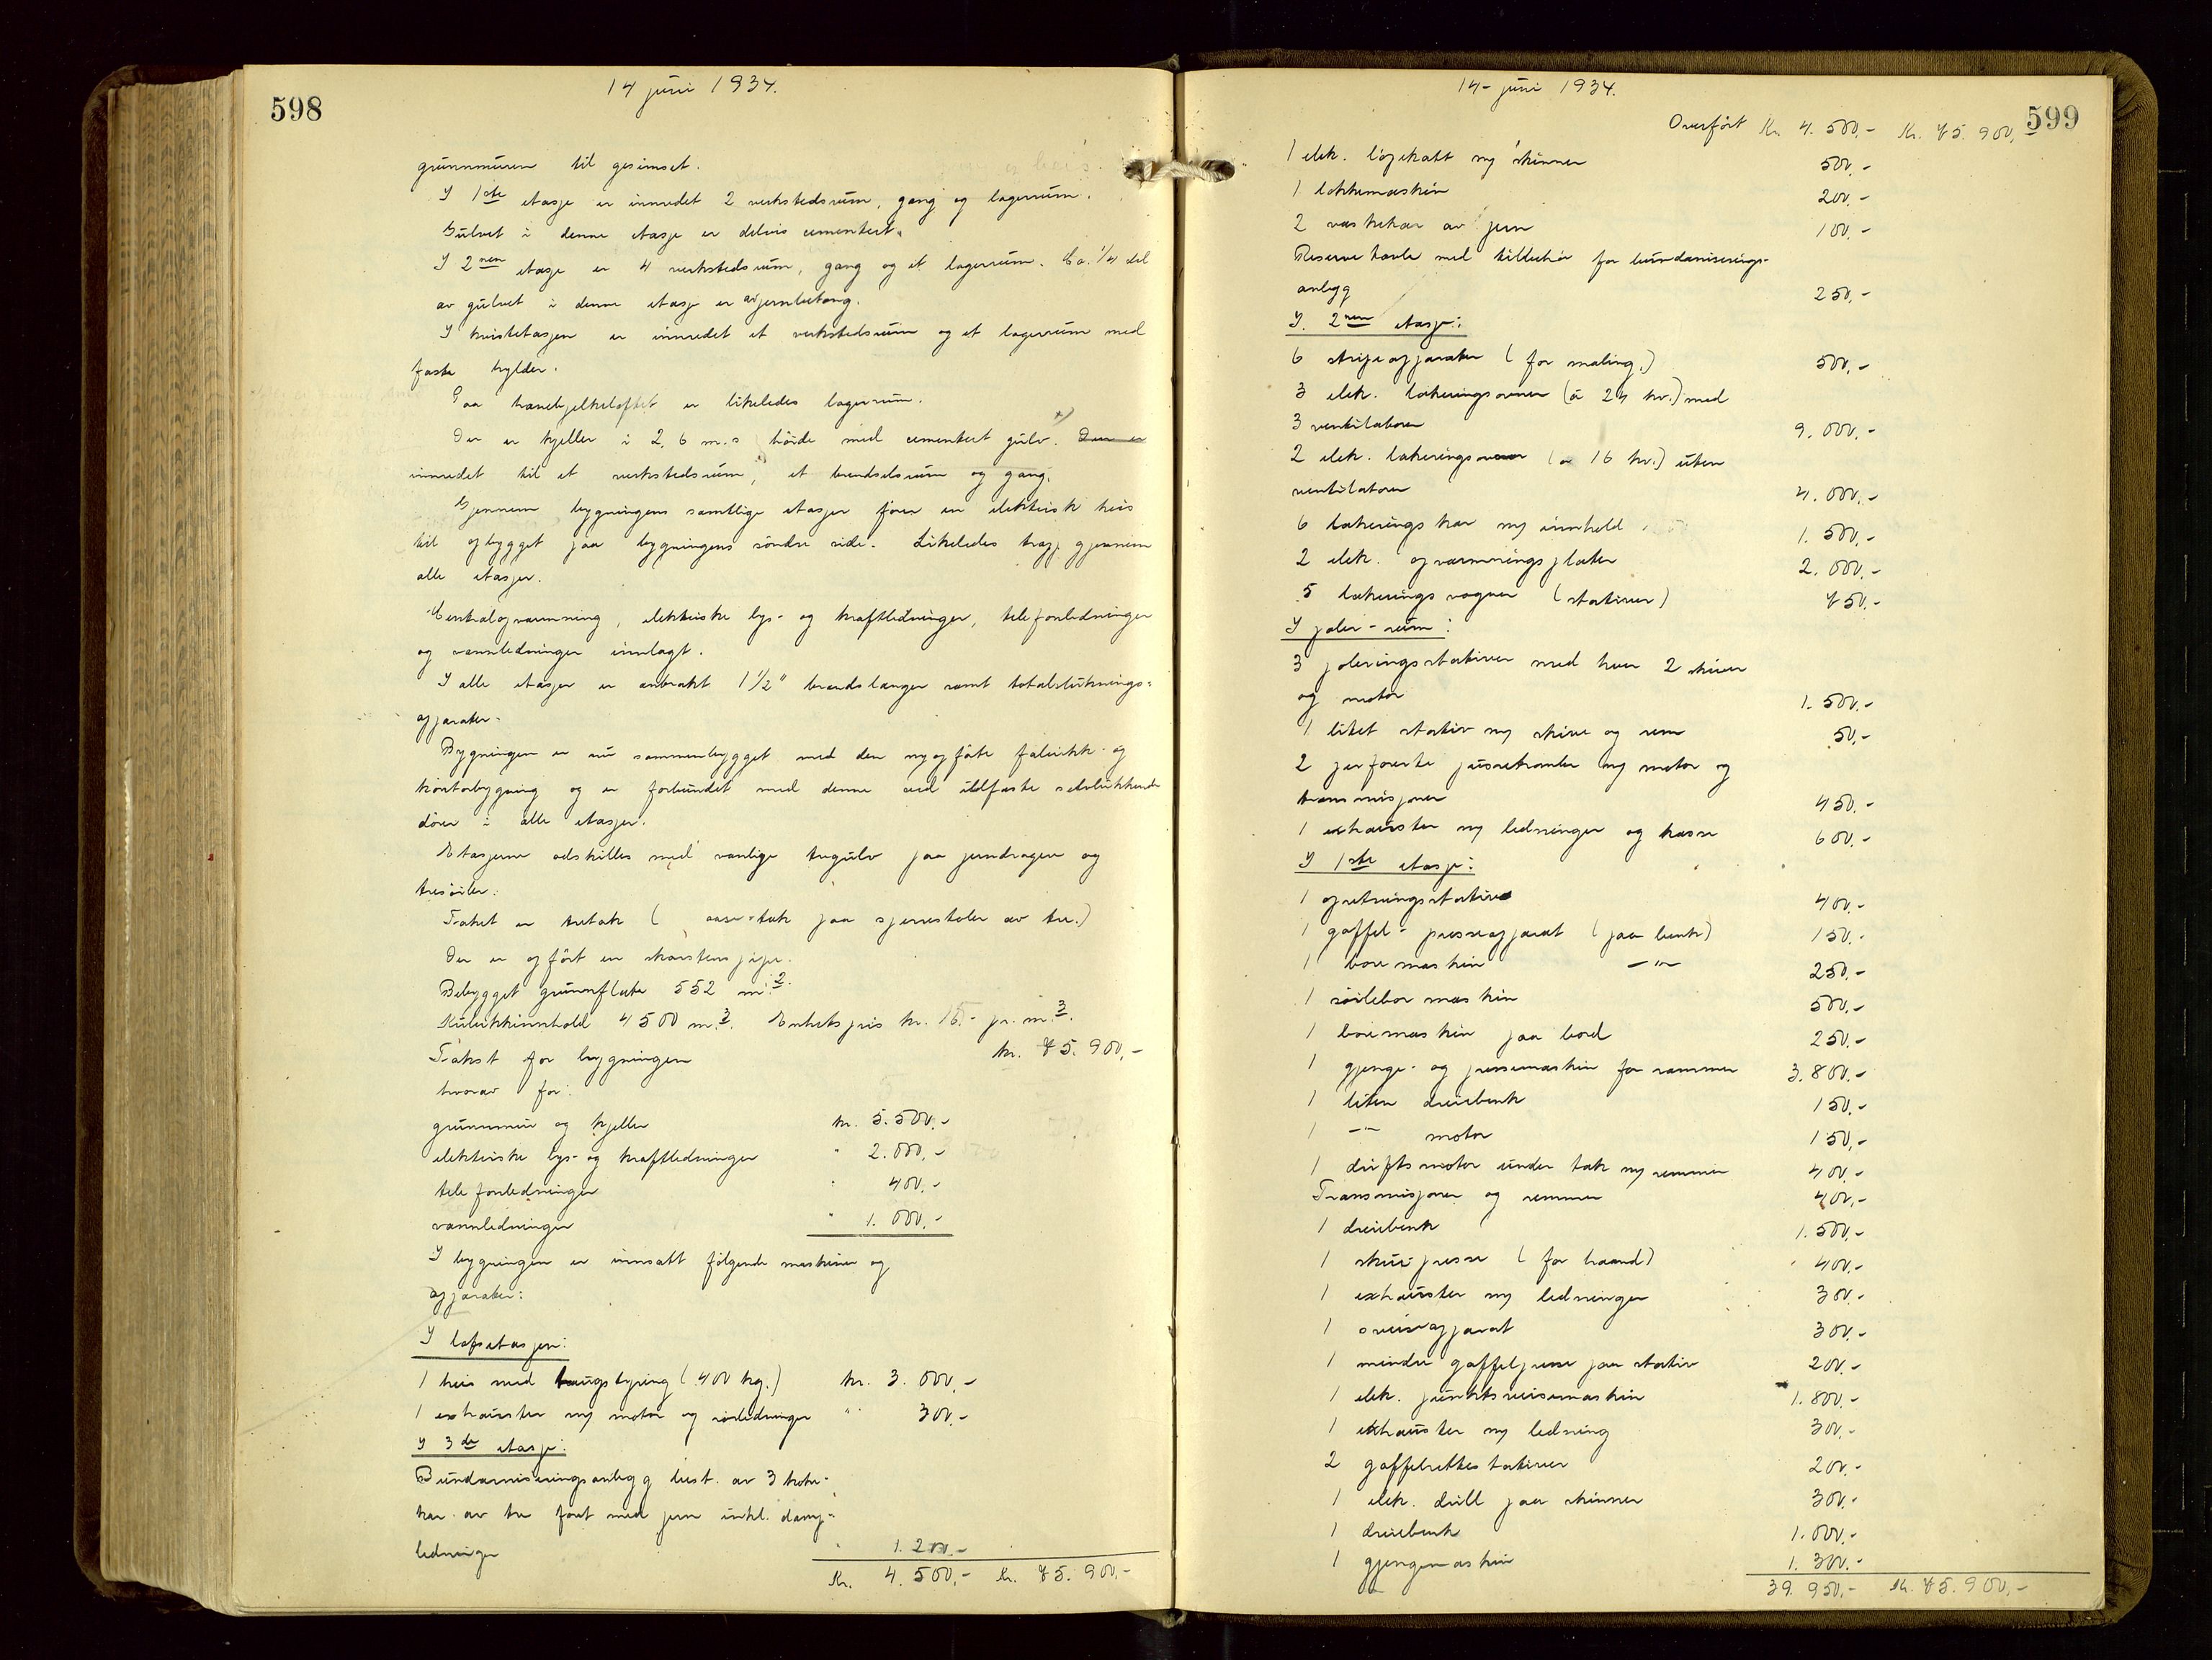 598
14 juni 1934.
grunnmuren til gesimset.
I 1ste etasje er innredet 2 verkstedsrum, gang og lagerrum.
Gulvet i denne etasje er delvis cementert.
I 2nen etasje er 4 verkstedsrum, gang og et lagerrum. Ca. 1/4 del
av gulvet i denne etasje er av jernbetong.
I kvistetasjen er innredet et verkstedsrum og et lagerrum med
faste hylder.
Paa hanebjelkeloftet er likeledes lagerrum.
Der er kjeller i 2,6 m.s høide med cementert gulv. Den er
innredet til et verkstedsrum, et brendselsrum og gang.
Gjennem bygningens samtlige etasjer fører en elektrisk heis
til opbygget paa bygningens søndre side. Likeledes trapp gjennem
alle etasjer.
Centralopvarmning, elektriske lys- og kraftledninger, telefonledninger
og vannledninger innlagt.
I alle etasjer er anbrakt 1 1/2" brandslanger samt totalsluknings-
apparater.
Bygningen er nu sammenbygget med den nyopførte fabrikk- og
kontorbygning og er forbundet med denne ved ildfaste selvlukkende
dører i alle etasjer.
Etasjerne adskilles med vanlige tregulv paa jerndragere og
tresøiler.
Taket er tretak ( aase-tak paa sperrestoler av tre.)
Der er opført en skorstenspipe.
Bebygget grunnflate 552 m.2.
Kubikkinnhold 4500 m.3. Enhetspris kr. 15.- pr. m.3.
Takst for bygningen kr. 75.900,-
hvorav for:
grunnmur og kjeller kr. 5.500,-
elektriske lys- og kraftledninger " 2.000,-
telefonledninger " 400,-
vannledninger " 1.000,-
I bygningen er innsatt følgende maskiner og
apparater:
I loftsetasjen:
1 heis med taugstyring (400 kg.) kr. 3.000,-
1 exhauster m/ motor og rørledninger " 300,-
I 3de etasje:
Bundarniseringsanlegg best. av 3 koke-
kar av tre foret med jern inkl. damp-
ledninger " 1.200,-
Kr. 4.500,- Kr. 75.900,-
599
14- juni 1934.
Overført Kr. 4.500,- Kr. 75.900,
1 elek. løpekatt m/ skinner 500,-
1 lokkemaskin 200,-
2 vaskekar av jern 100,-
Reserve tavle med tilbehør for bundarniserings-
anlegg 250,-
I. 2nen etasje:
6 stripeapparater (for maling.) 500,-
3 elek. lakeringsovner (à 24 kw.) med
3 ventilatorer 9.000,-
2 elek. lakeringsovner (à 16 kw.) uten
ventilatorer 4.000,-
6 lakeringskar m/ innhold 1.500,-
2 elek. opvarmningsplater 2.000,-
5 lakeringsvogner (stativer) 750,-
I poler-rum:
3 poleringsstativer med hver 2 skiver
og motor 1.500,-
1 litet stativ m/ skive og rem 50,-
2 perforerte pussetromler m/ motor og
transmisjoner 450,-
1 exhauster m/ ledninger og kasse 600,-
I 1ste etasje:
1 opretningsstativ 400,-
1 gaffel-presseapparat (paa benk) 150,-
1 boremaskin -"- 250,-
1 søilebormaskin 500,-
1 boremaskin paa bord 250,-
1 gjenge- og pressemaskin for rammer 3.800,-
1 liten dreiebenk 150,-
1 -"- motor 150,-
1 driftsmotor under tak m/ remmer 400,-
Transmisjoner og remmer 400,-
1 dreiebenk 1.500,-
1 skruepresse (for haand) 400,-
1 exhauster m/ ledninger 300,-
1 sveiseapparat 300,-
1 mindre gaffelpresse paa stativ 200,-
1 elek. punktsveisemaskin 1.800,-
1 exhauster m/ ledning 300,-
2 gaffelrettestativer 200,-
1 elek. drill paa skinner 300,-
1 dreiebenk 1.000,-
1 gjengemaskin 1.300,-
39.950,- Kr. 75.900,-